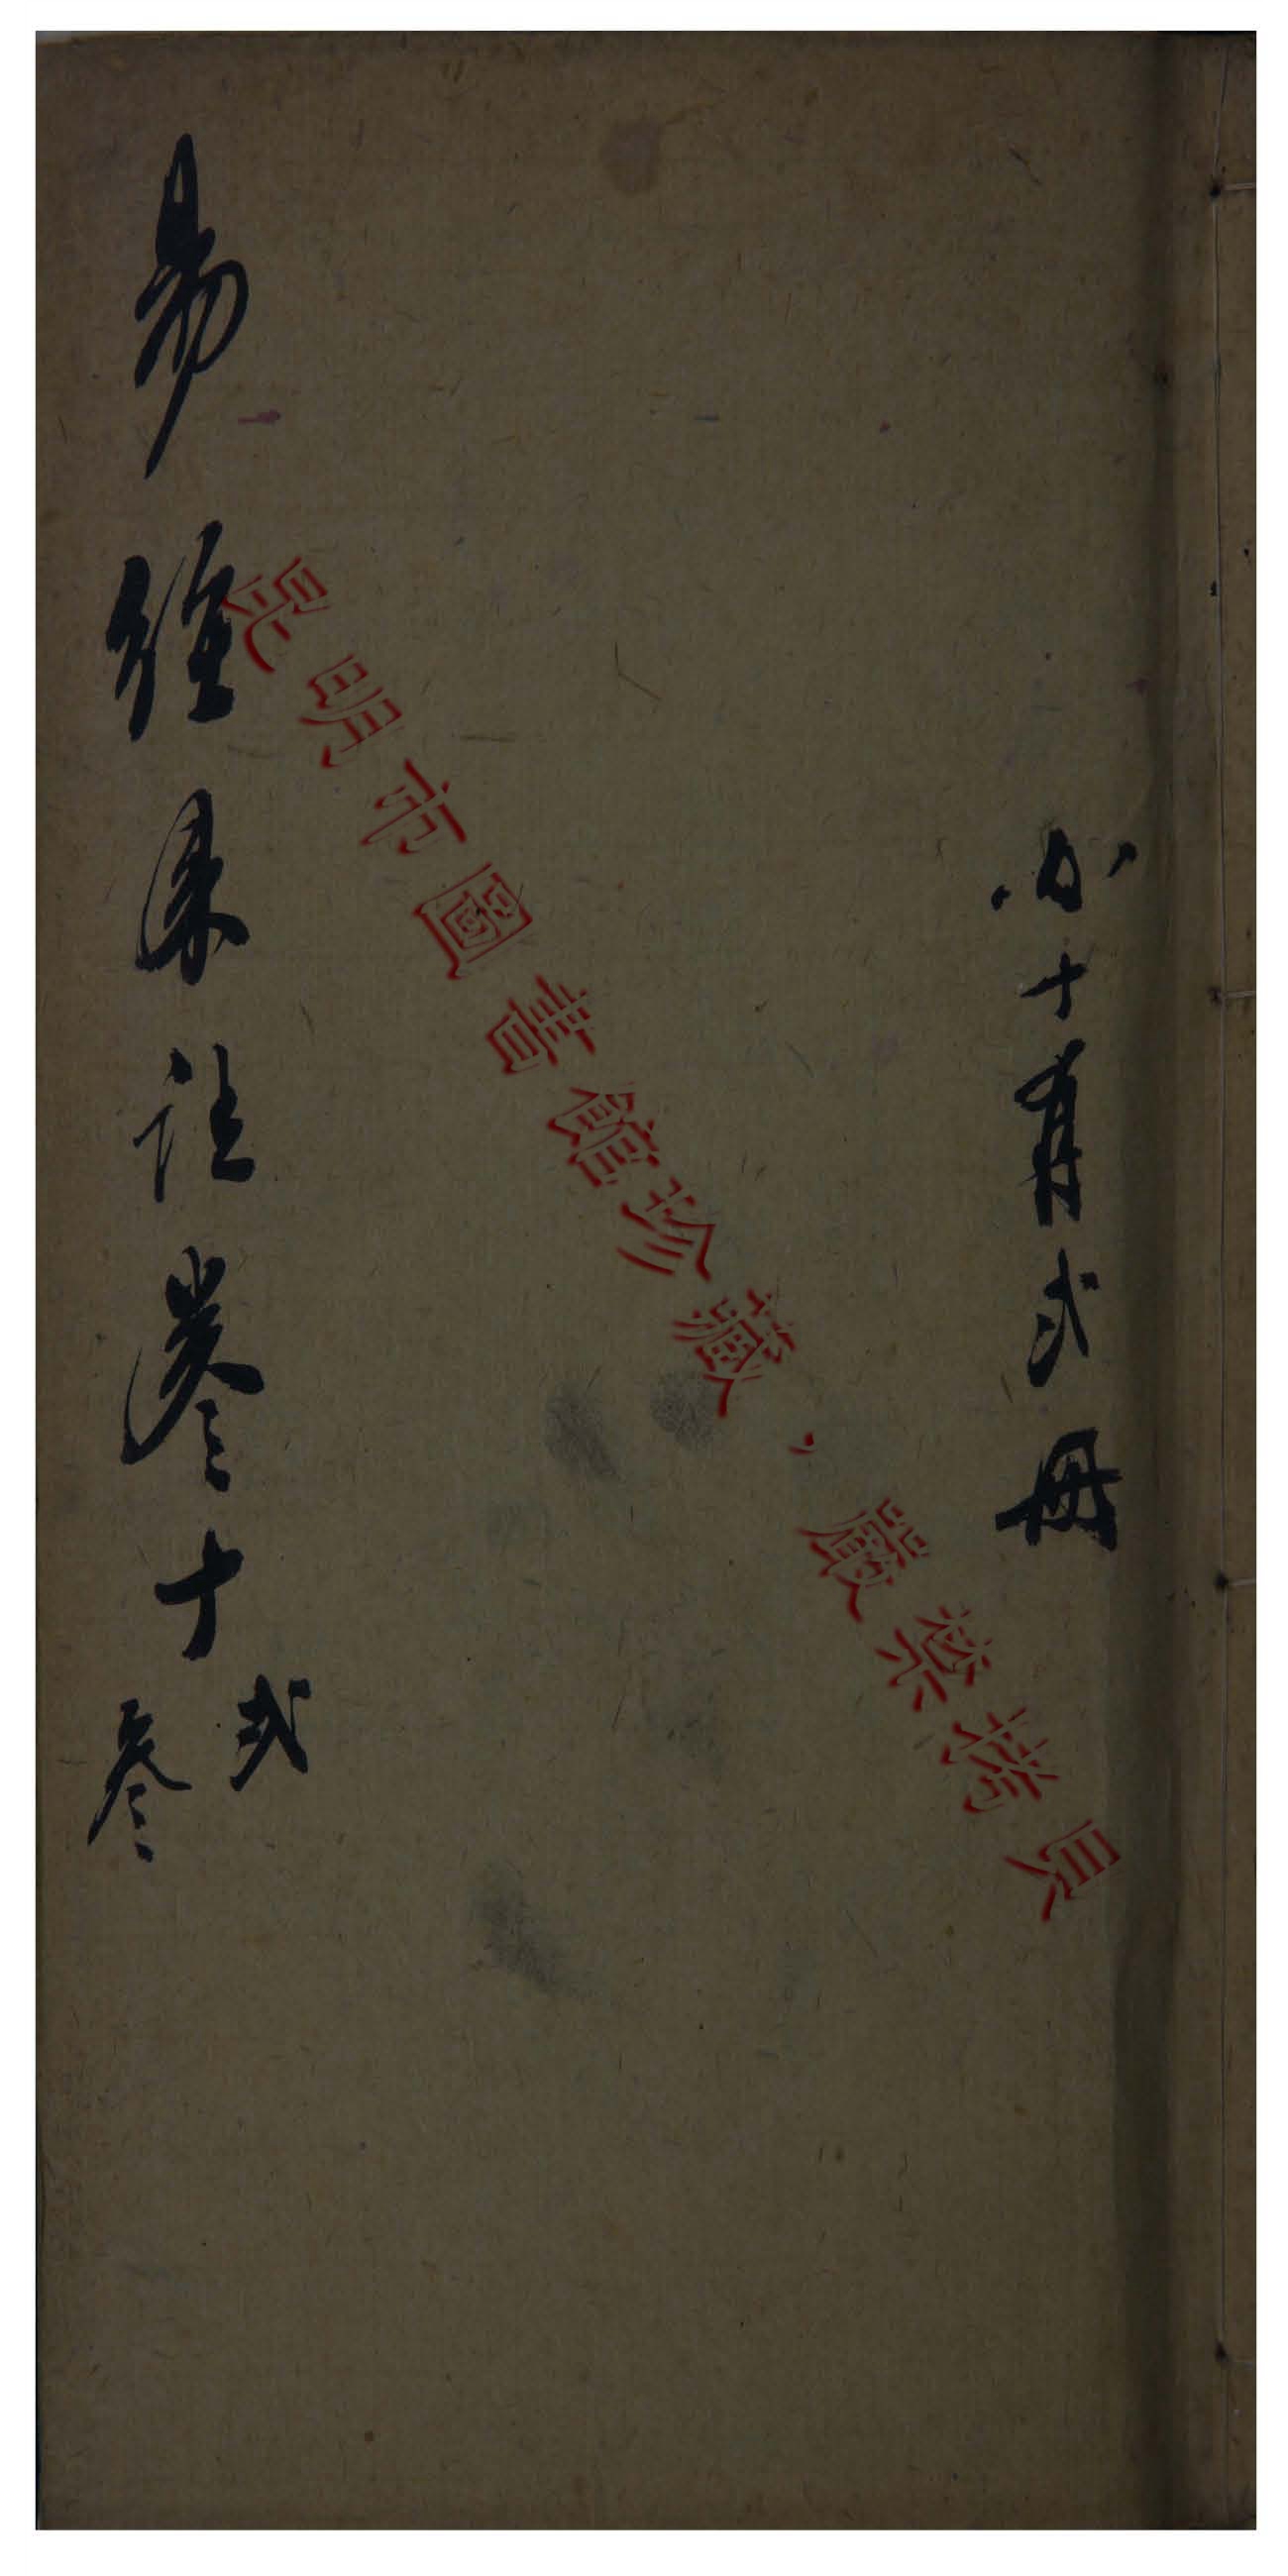 共十有弍冊
易經來註卷十弍叁
昆明市圖書館珍藏,嚴禁拷貝